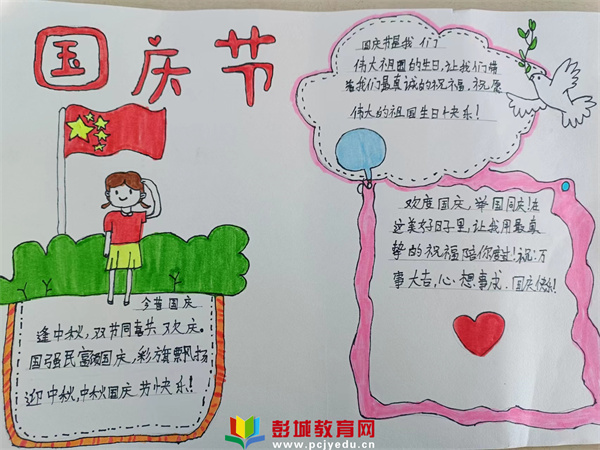 国庆节
国庆节是我们
伟大祖国的生日,让我们带
着我们最真诚的祝福,祝愿
伟大的祖国生日快乐!
欢度国庆,举国同庆!在
这美好日子里,让我用最真
挚的祝福陪你度过!祝:万
事大吉,心想事成.国庆快乐!
今昔国庆
逢中秋,双节同喜共欢庆。
国强民富颂国庆,彩旗飘扬
迎中秋,中秋国庆节快乐!
彭城教育网
www.pcjyedu.cn